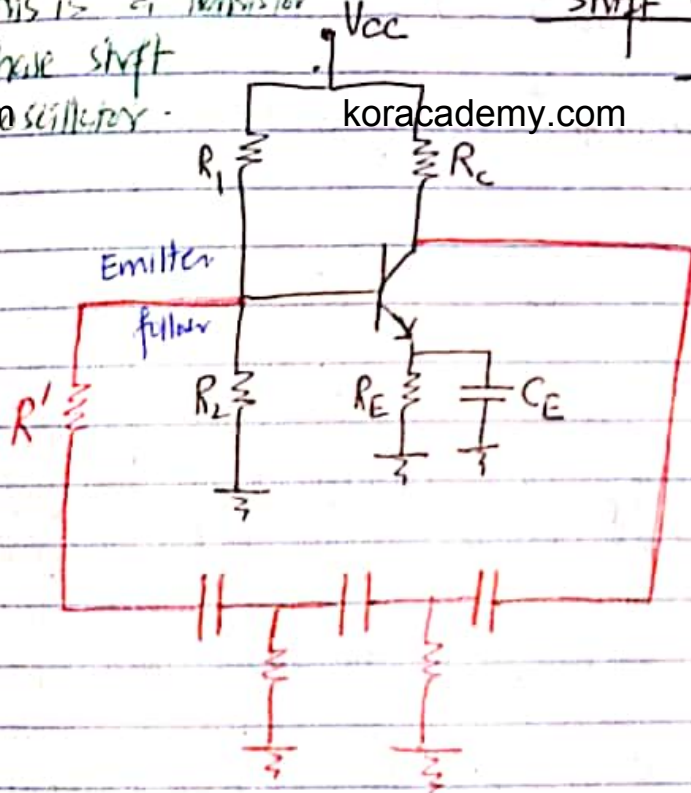 This is a transistor
phase shift
oscillator.
shift
Vcc
koracademy.com
R1
Rc
Emitter
follower
R'
R2
RE
CE